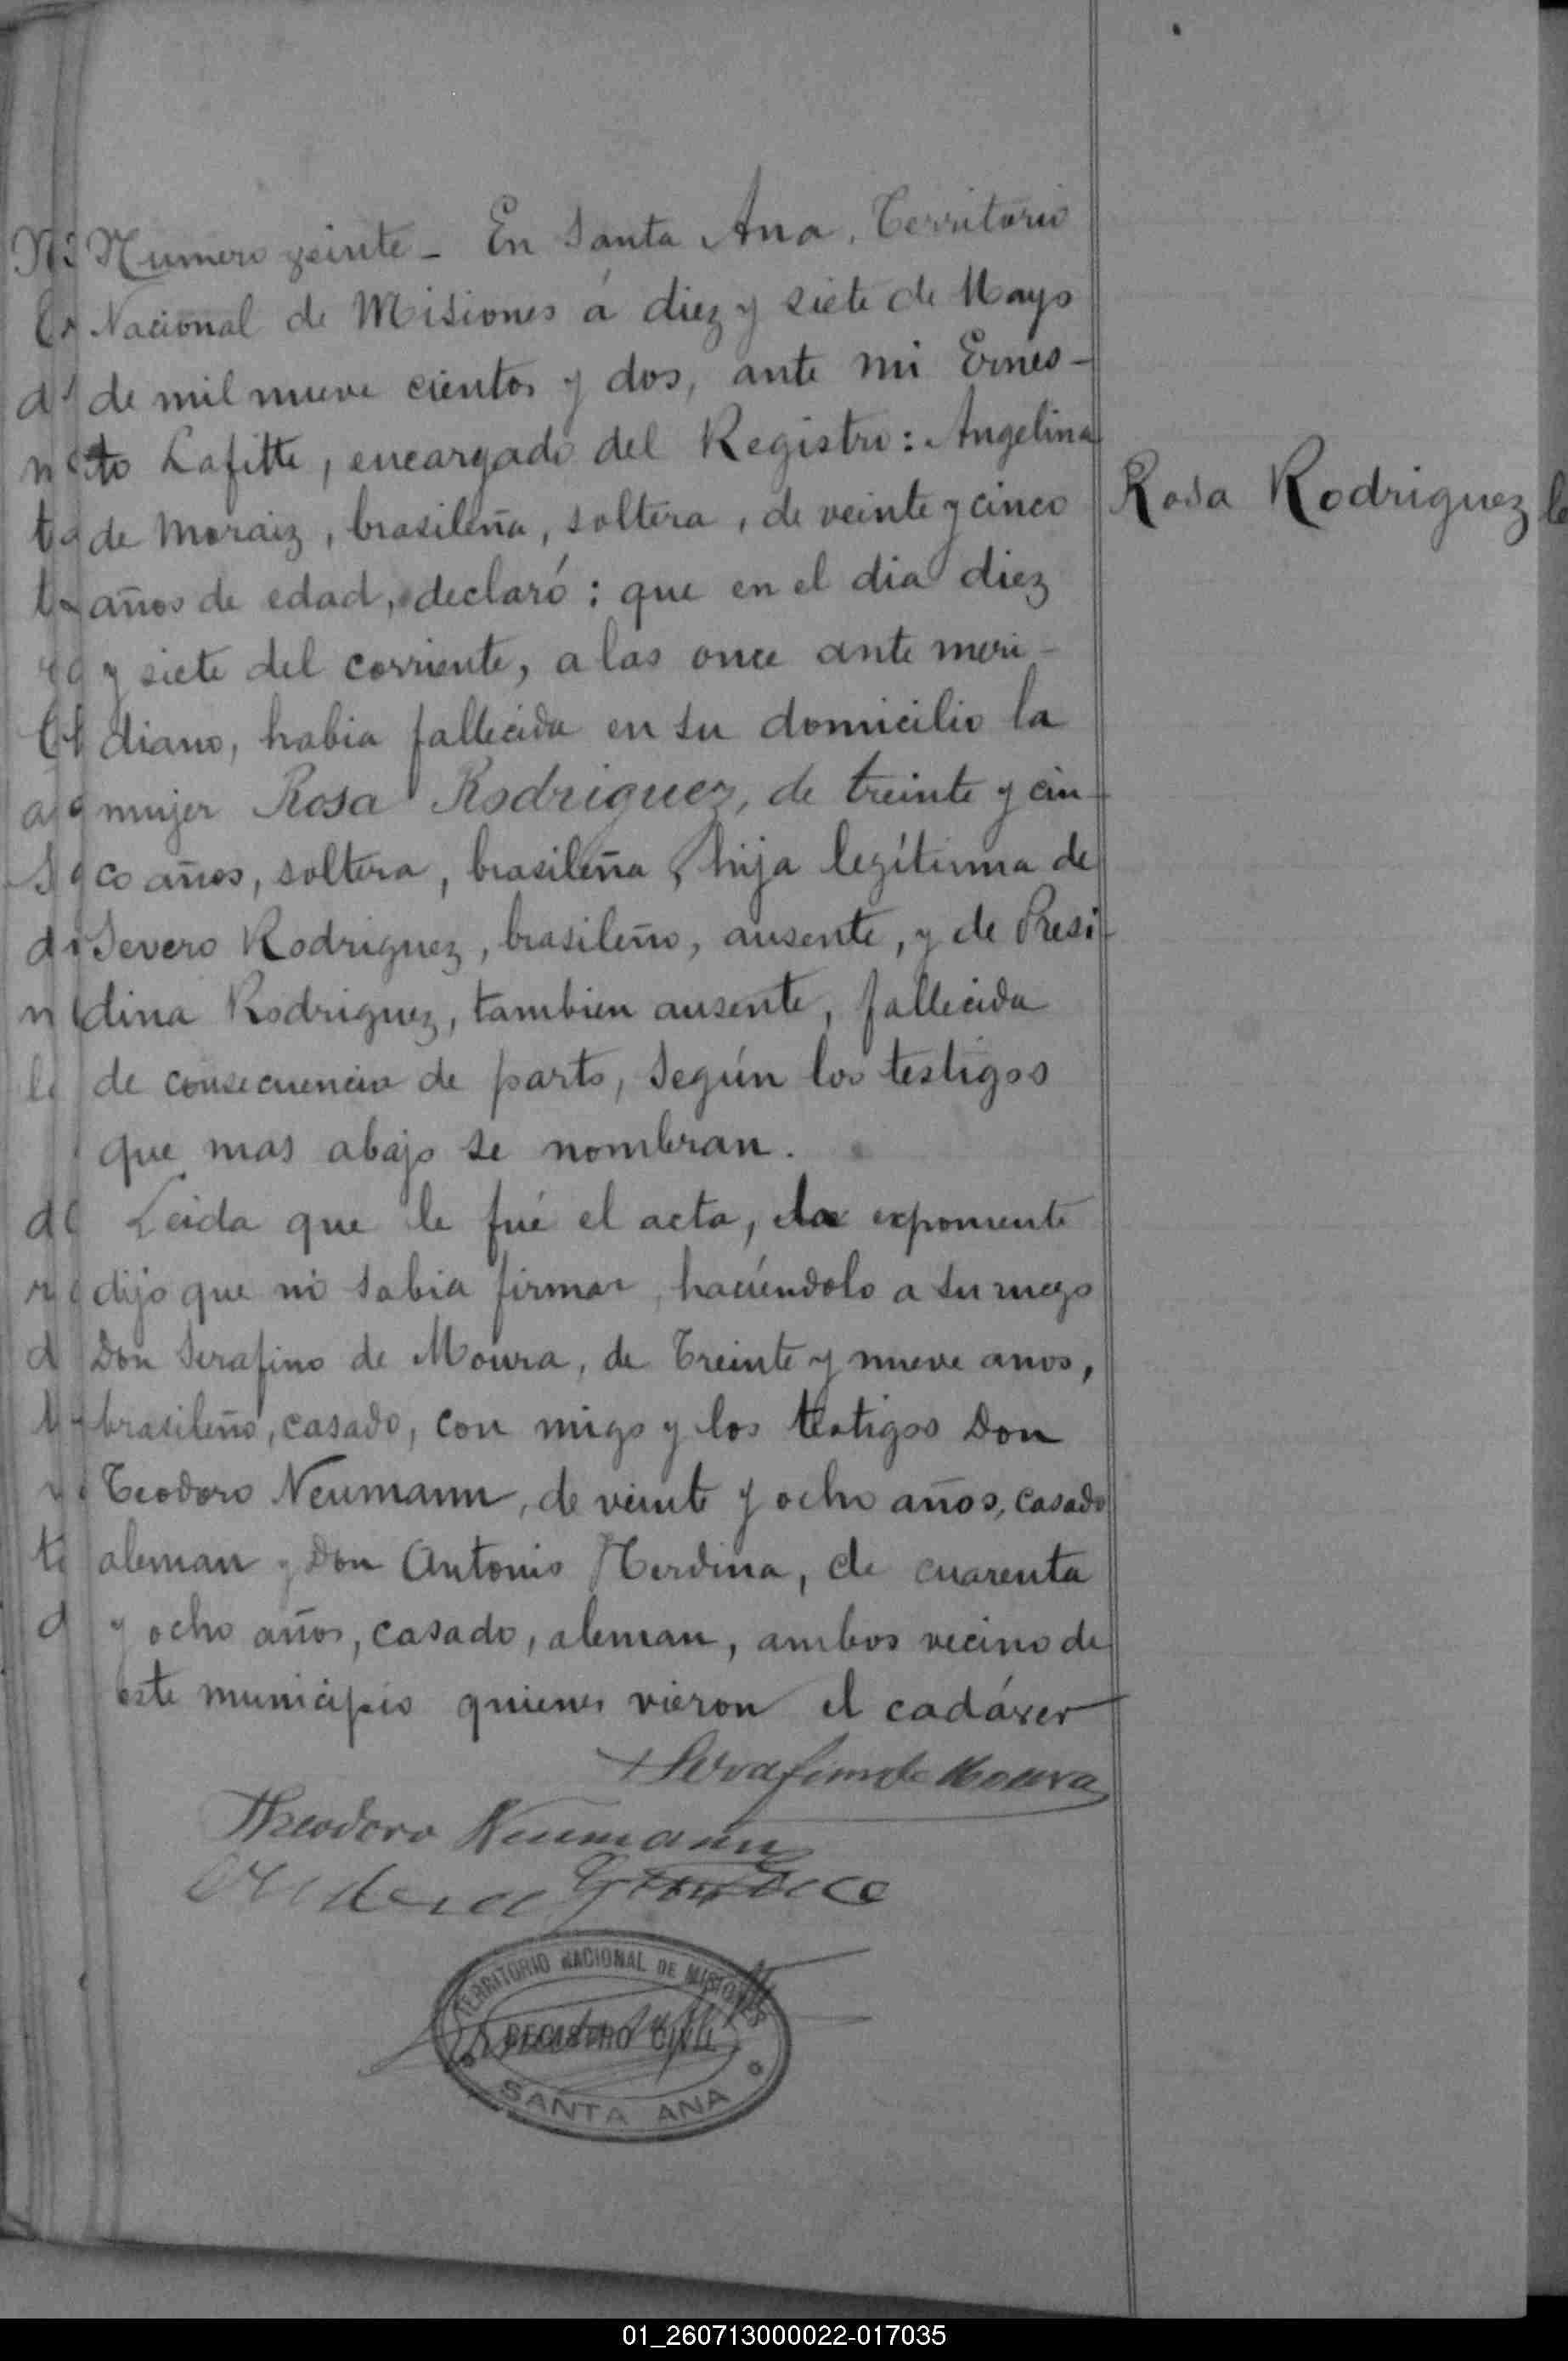 Numero veinte – En Santa Ana, Territorio
Nacional de Misiones á diez y siete de Mayo
de mil nueve cientos y dos, ante mi Ernes-
to Lafitte, encargado del Registro: Angelina
de Moraiz, brasileña, soltera, de veinte y cinco
años de edad, declaró: que en el dia diez
y siete del corriente, a las once ante meri-
diano, habia fallecida en su domicilio la
mujer Rosa Rodriguez, de treinta y cin-
co años, soltera, brasileña, hija legítima de
Severo Rodriguez, brasileño, ausente, y de Presi-
dina Rodriguez, tambien ausente, fallecida
de consecuencia de parto, según los testigos
que mas abajo se nombran.
Leida que le fué el acta, la exponente
dijo que no sabia firmar, haciéndolo a su ruego
Don Serafino de Moura, de treinte y nueve anos,
brasileño, casado, con migo y los testigos Don
Teodoro Neumann, de veinte y ocho años, casado
aleman y Don Antonio Merdina, de cuarenta
y ocho años, casado, aleman, ambos vecino de
este municipio quienes vieron el cadáver
Serafim de Moura
Theodoro Neumann
TERRITORIO NACIONAL DE MISIONES
REGISTRO CIVIL
SANTA ANA
Rosa Rodriguez
01_260713000022-017035